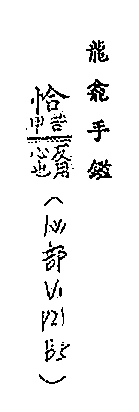 龍龕手鑑
恰苦甲反用心也(心部V1 P21 B5)